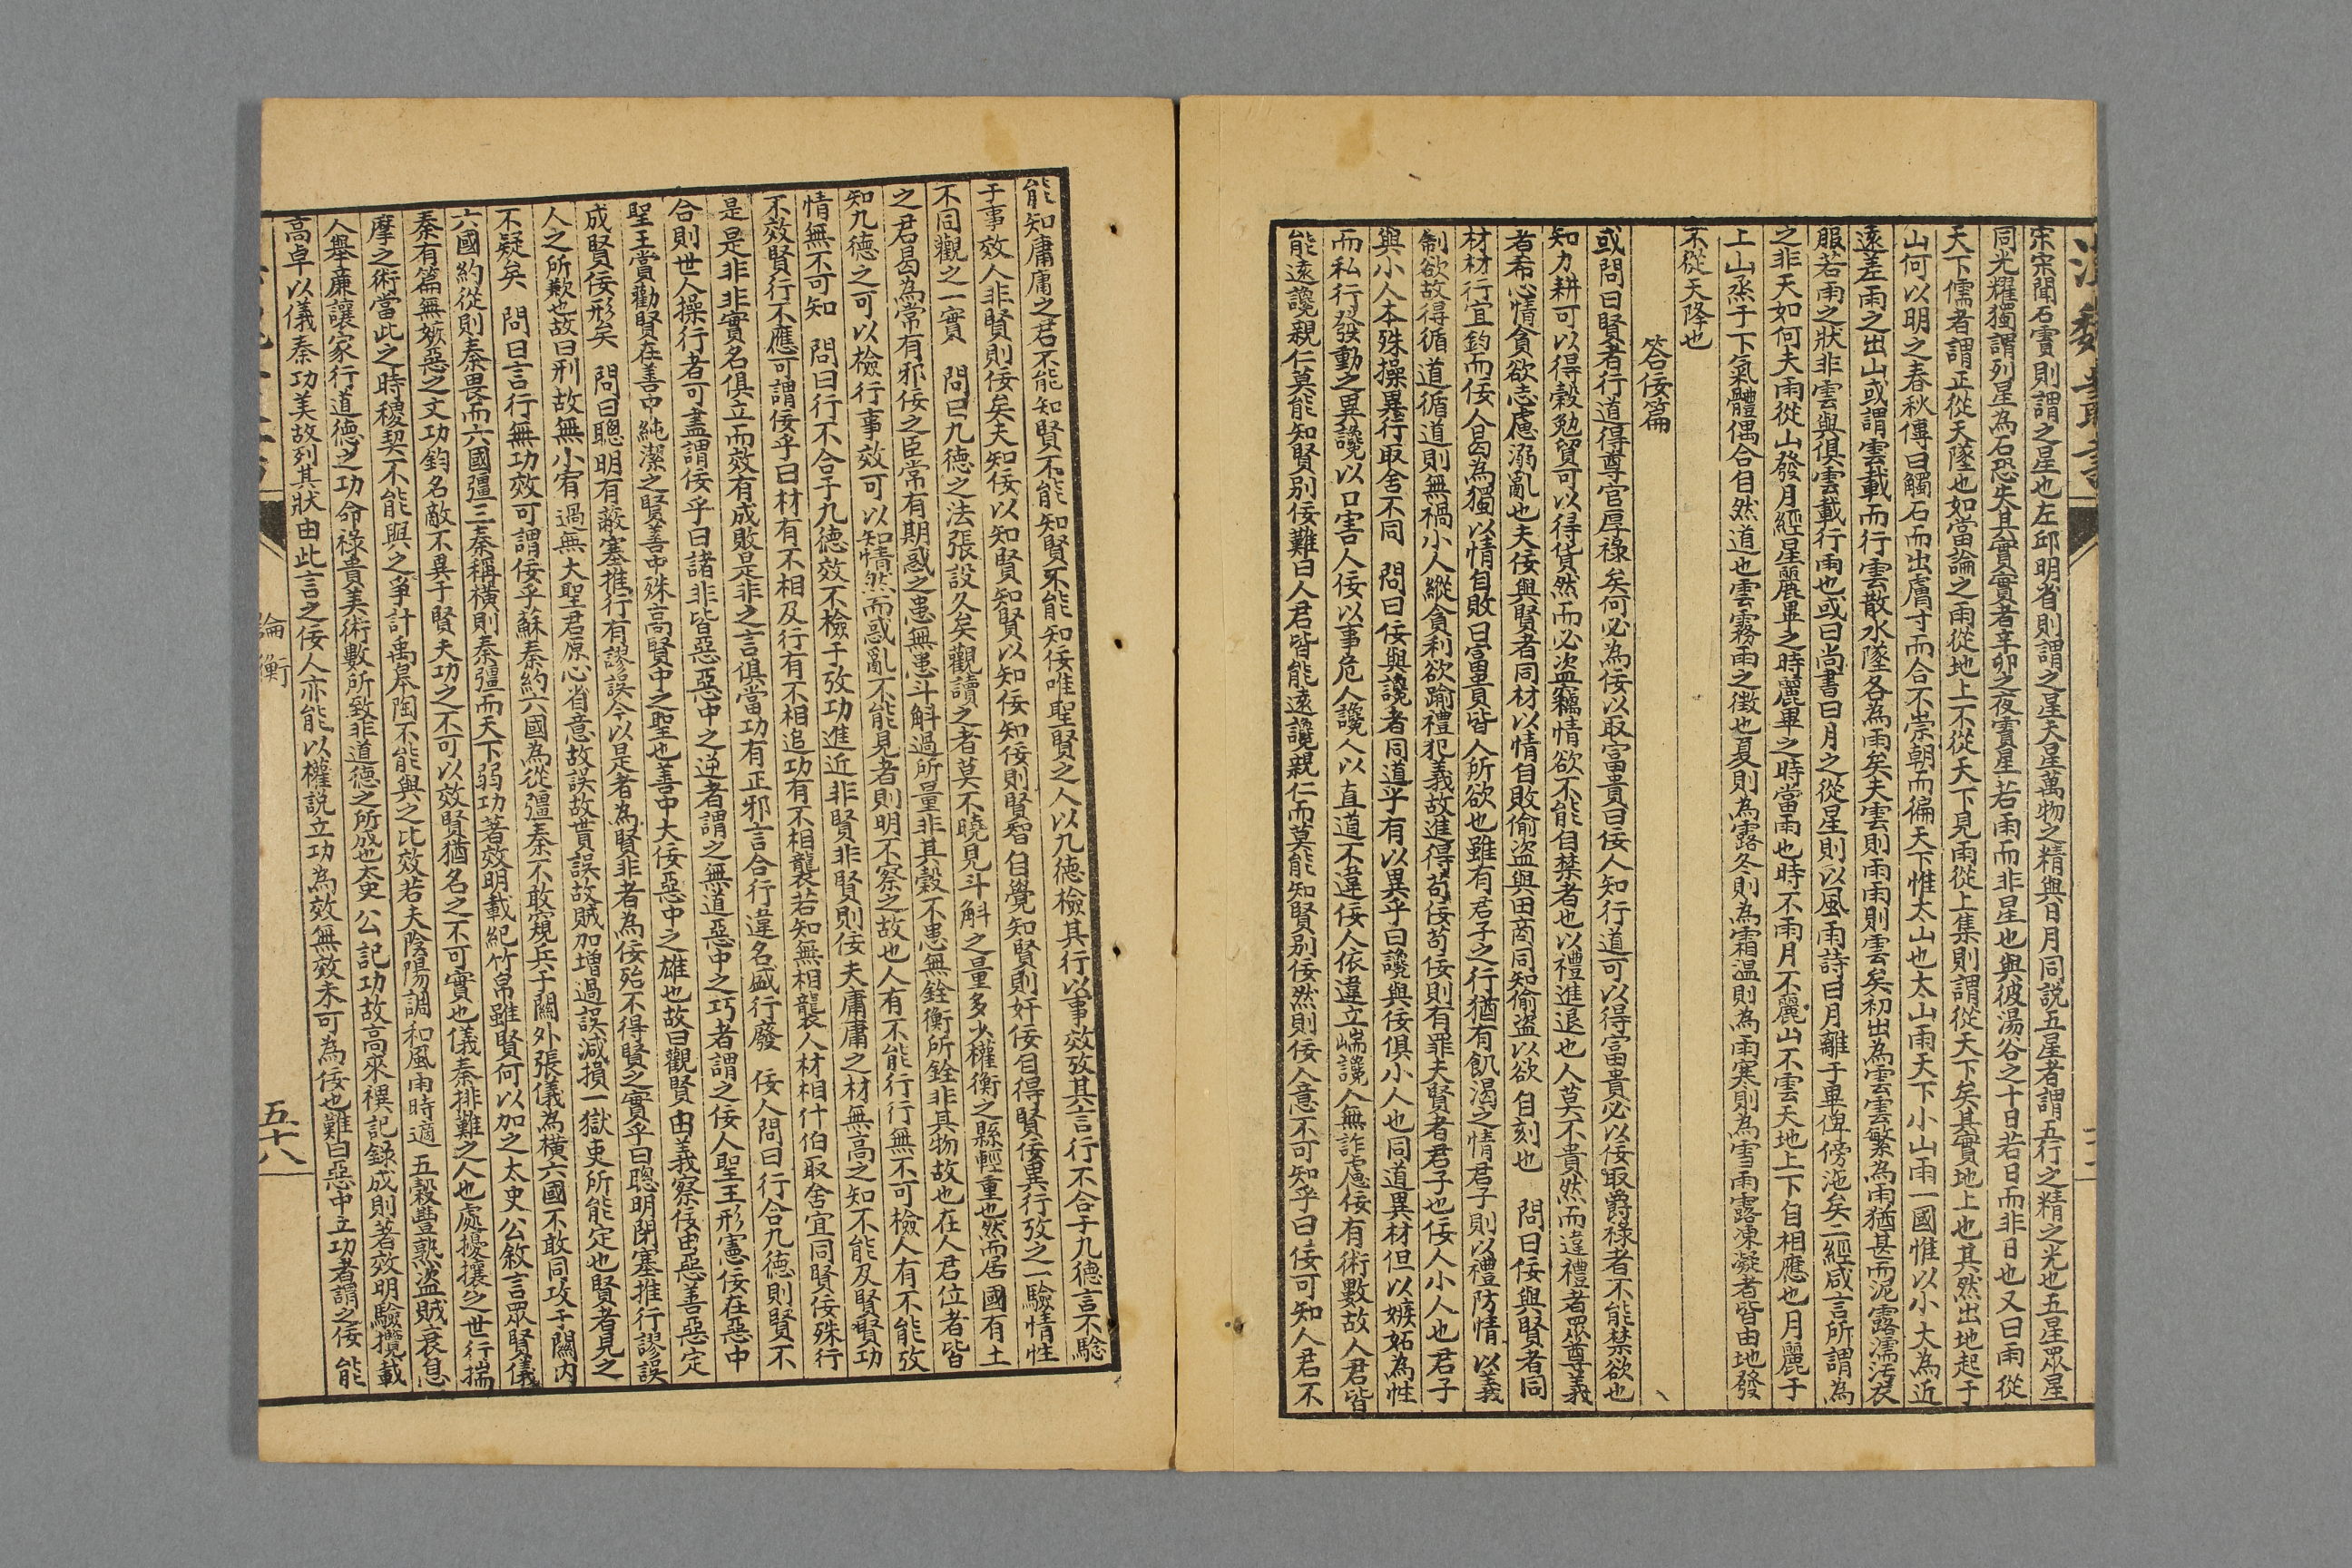 宋宋聞石霣則謂之星也左邱明省則謂之星夫星萬物之精與日月同說五星者謂五行之精之光也五星眾星
同光耀獨謂列星為石恐失其實實者辛卯之夜霣星若雨而非星也與彼湯谷之十日若日而非日也又曰雨從
天下儒者謂正從天墜也如當論之雨從地上不從天下見雨從上集則謂從天下矣其實地上也其然出地起于
山何以明之春秋傳曰觸石而出膚寸而合不崇朝而徧天下惟太山也太山雨天下小山雨一國惟以小大為近
遠差雨之出山或謂雲載而行雲散水墜各為雨矣夫雲則雨雨則雲矣初出為雲雲繁為雨猶甚而泥露濡汚衣
服若雨之狀非雲與俱雲載行雨也或曰尚書曰月之從星則以風雨詩曰月離于畢俾滂沲矣二經咸言所謂為
之非天如何夫雨從山發月經星麗畢之時麗畢之時當雨也時不雨月不麗山不雲天地上下自相應也月麗于
上山烝于下氣體偶合自然道也雲霧雨之徵也夏則為露冬則為霜温則為雨寒則為雪雨露凍凝者皆由地發
不從天降也
答佞篇
或問曰賢者行道得尊官厚祿矣何必為佞以取富貴曰佞人知行道可以得富貴必以佞取爵祿者不能禁欲也
知力耕可以得穀勉貿可以得貨然而必盗竊情欲不能自禁者也以禮進退也人莫不貴然而違禮者眾尊義
者希心情貪欲志慮溺亂也夫佞與賢者同材以情自敗偷盗與田商同知偷盗以欲自刻也　問曰佞與賢者同
材材行宜鈞而佞人曷為獨以情自敗曰富貴皆人所欲也雖有君子之行猶有飢渴之情君子則以禮防情以義
制欲故得循道循道則無禍小人縱貪利欲踰禮犯義故進得苟佞苟佞則有罪夫賢者君子也佞人小人也君子
與小人本殊操異行取舍不同　問曰佞與讒者同道乎有以異乎曰讒與佞俱小人也同道異材但以嫉妬為性
而私行發動之異讒以口害人佞以事危人讒人以直道不違佞人依違立端讒人無詐慮佞有術數故人君皆
能遠讒親仁莫能知賢別佞難曰人君皆能遠讒親仁而莫能知賢別佞然則佞人意不可知乎曰佞可知人君不
能知庸庸之君不能知賢不能知賢不能知佞唯聖賢之人以九德檢其行以事效攷其言行不合于九德言不驗
于事效人非賢則佞矣夫知佞以知賢知賢以知佞知佞則賢智自覺知賢則奸佞自得賢佞異行攷之一驗情性
不同觀之一實　問曰九德之法張設久矣觀讀之者莫不曉見斗斛之量多少權衡之縣輕重也然而居國有土
之君曷為常有邪佞之臣常有期惑之患無患斗斛過所量非其穀不患無銓衡所銓非其物故也在人君位者皆
知九德之可以檢行事效可以知情然而惑亂不能見者則明不察之故也人有不能行行無不可檢人有不能攷
情無不可知　問曰行不合于九德效不檢于攷功進近非賢非賢則佞夫庸庸之材無高之知不能及賢賢功
不效賢行不應可謂佞乎曰材有不相及行有不相追功有不相襲若知無相襲人材相什伯取舍宜同賢佞殊行
是是非非實名俱立而效有成敗是非之言俱當功有正邪言合行違名盛行廢　佞人問曰行合九德則賢不
合則世人操行者可盡謂佞乎曰諸非皆惡惡中之逆者謂之無道惡中之巧者謂之佞人聖王刑憲佞在惡中
聖王賞勸賢在善中純潔之賢善中殊高賢中之聖也善中大佞惡中之雄也故曰觀賢由義察佞由惡善惡定
成賢佞形矣　問曰聰明有蔽塞推行有謬誤今以是者為賢非者為佞殆不得賢之實乎曰聰明閉塞推行謬誤
人之所歉也故曰刑故無小宥過無大聖君原心省意故誤故貰誤故賊加增過誤減損一獄吏所能定也賢者見之
不疑矣　問曰言行無功效可謂佞乎蘇秦約六國為從彊秦不敢窺兵于關外張儀為橫六國不敢同攻于關內
六國約從則秦畏而六國彊三秦稱橫則秦彊而天下弱功著效明載紀竹帛雖賢何以加之太史公敘言眾賢儀
秦有篇無嫉惡之文功鈞名敵不異于賢夫功之不可以效賢猶名之不可實也儀秦排難之人也處擾攘之世行揣
摩之術當此之時稷契不能與之爭計禹皋陶不能與之比效若夫陰陽調和風雨時適五穀豐熟盗賊衰息
人舉廉讓家行道德之功命祿貴美術數所致非道德之所成也太史公記功故高來禩記錄成則著效明驗攬載
高卓以儀秦功美故列其狀由此言之佞人亦能以權說立功為效無效未可為佞也難曰惡中立功者謂之佞能
論衡
五十八